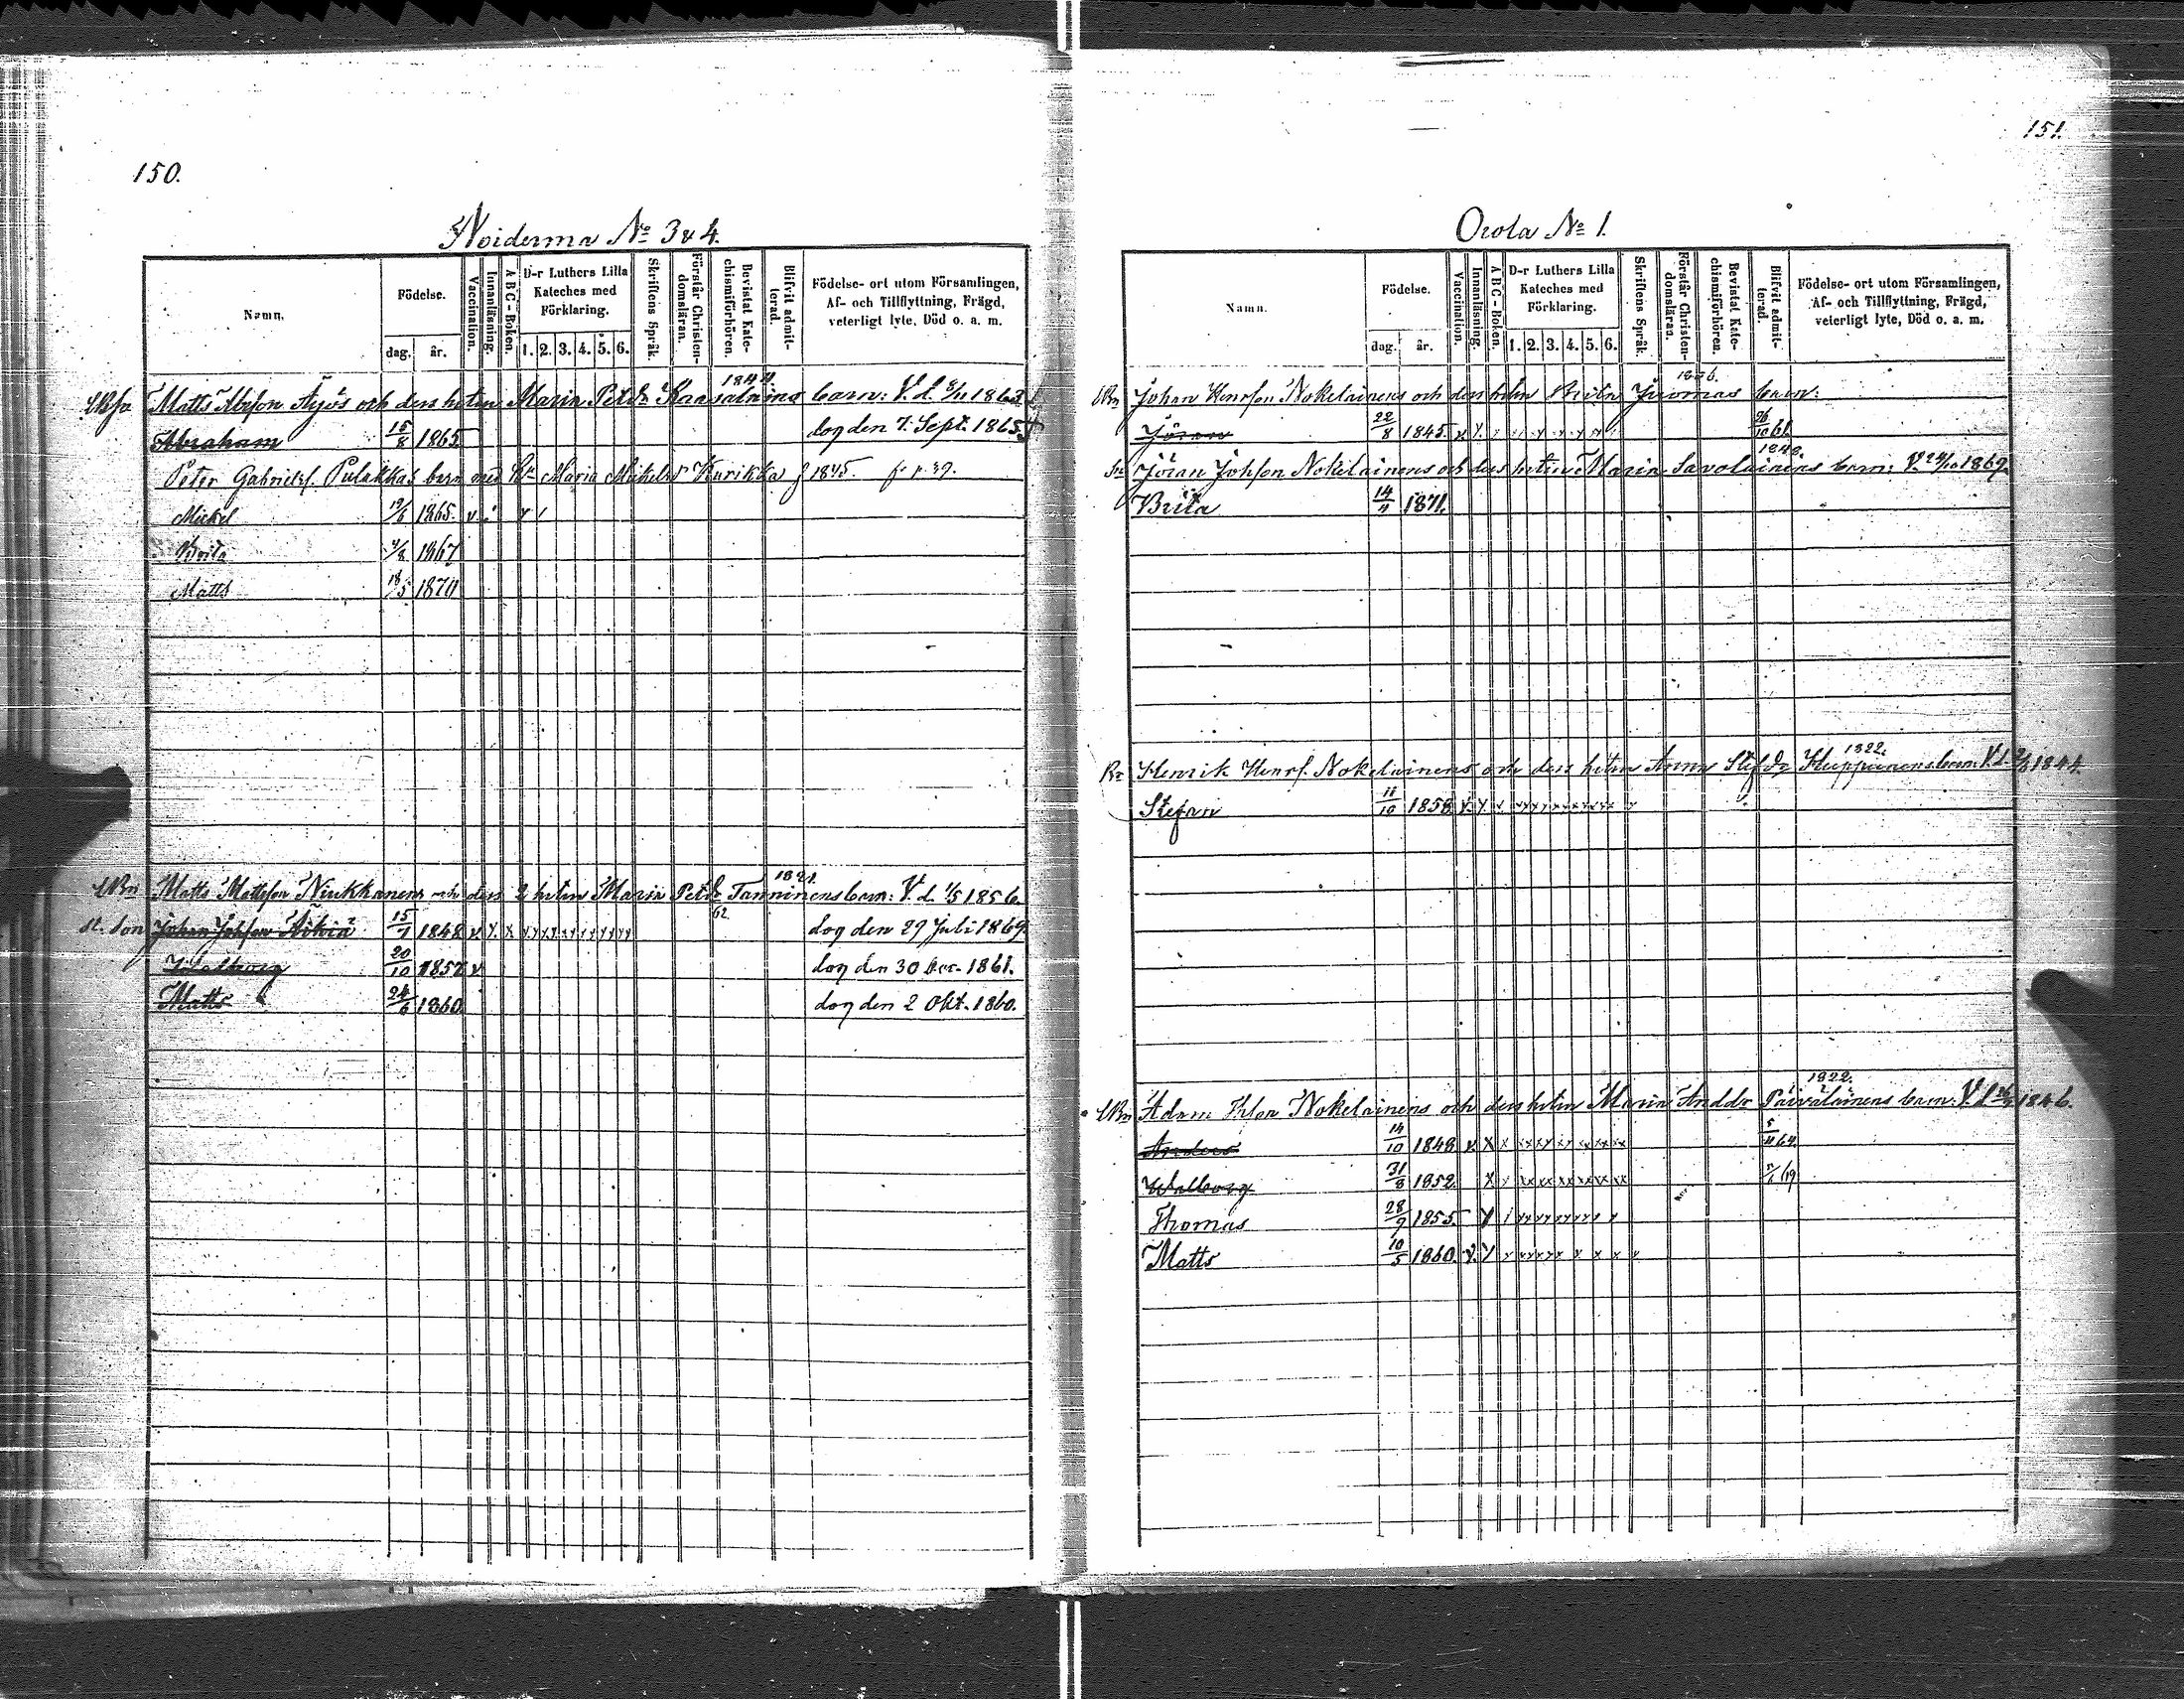 150.
Noiderma No 3 & 4.
Namn.
Födelse.
dag.
år.
Vaccination.
Innanläsning.
ABC-Boken.
D-r Luthers Lilla Kateches med Förklaring.
1. 2. 3. 4. 5. 6.
Skriftens Språk.
Förstår Christendomsläran.
Bevistat Katechismiförhören.
Blifvit admitterad.
Födelse- ort utom Församlingen,
Af- och Tillflyttning, Frägd,
veterligt lyte, Död o. a. m.
1844.
Matts Abrson Äyös och dess hstru Maria Petdr barn: V.d. 8/11 1863
Abraham 15/8 1865 dog den 7. Sept. 1865.
Peter Gabrielsf. Pulakkas barn med Maria Mickelsdr Kurikka f 1845. fr p. 39.
Mickel 19/6 1865.
Brita 4/8 1867
Matts 18/5 1870
1821.
Matts Mattsson Niukkanens och dess 2 hstru Maria Petdr Tanninens barn: V.d. 1/5 1856.
st. son Johan Johsson 15/7 1848 62 dog den 29 Juli 1869.
Walborg 20/10 1857 dog den 30 Dec. 1861.
Matts 24/6 1860. dog den 2 Okt. 1860.
151.
Orola No 1.
Namn.
Födelse.
dag.
år.
Vaccination.
Innanläsning.
ABC-Boken.
D-r Luthers Lilla Kateches med Förklaring.
1. 2. 3. 4. 5. 6.
Skriftens Språk.
Förstår Christendomsläran.
Bevistat Katechismiförhören.
Blifvit admitterad.
Födelse- ort utom Församlingen,
Af- och Tillflyttning, Frägd,
veterligt lyte, Död o. a. m.
Johan Henrson Nokelainens och dess hstru Brita Juomas barn:
Jöran 22/8 1845. 26/10 61.
1848.
Jöran Johsson Nokelainens och dess hstru Maria Savolainens barn: V. 24/10 1869.
Brita 14/4 1871.
1822.
Henrik Henrs. Nokelainens och dess hstru Anna Stefdr Huppunens barn. V.d. 1844.
Stefan 11/10 1858.
1822.
Adam Nokelainens och dess hstru Maria Anddr Päiväläinens barn: V.d. 1846.
Anders 14/10 1848 5/11 64.
Walborg 31/8 1852
Thomas 28/9 1855
Matts 10/5 1860.